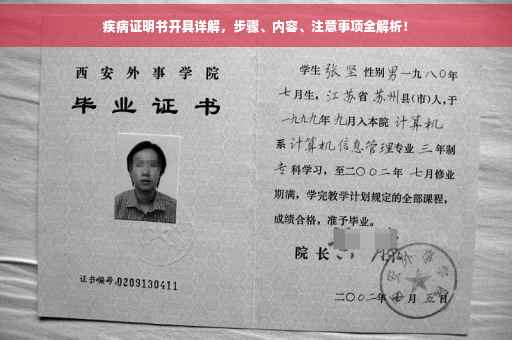 疾病证明书开具详解，步骤、内容、注意事项全解析！
西安外事学院
毕业证书
证书编号:0209130411
学生 张坚 性别 男 一九八〇年
七月生，江苏省 苏州县(市)人,于
一九九九年 九月入本院 计算机
系 计算机信息管理专业 三 年制
专科学习，至二〇〇二年 七月修业
期满，学完教学计划规定的全部课程，
成绩合格，准予毕业。
院长
二〇〇二年 七月 五日